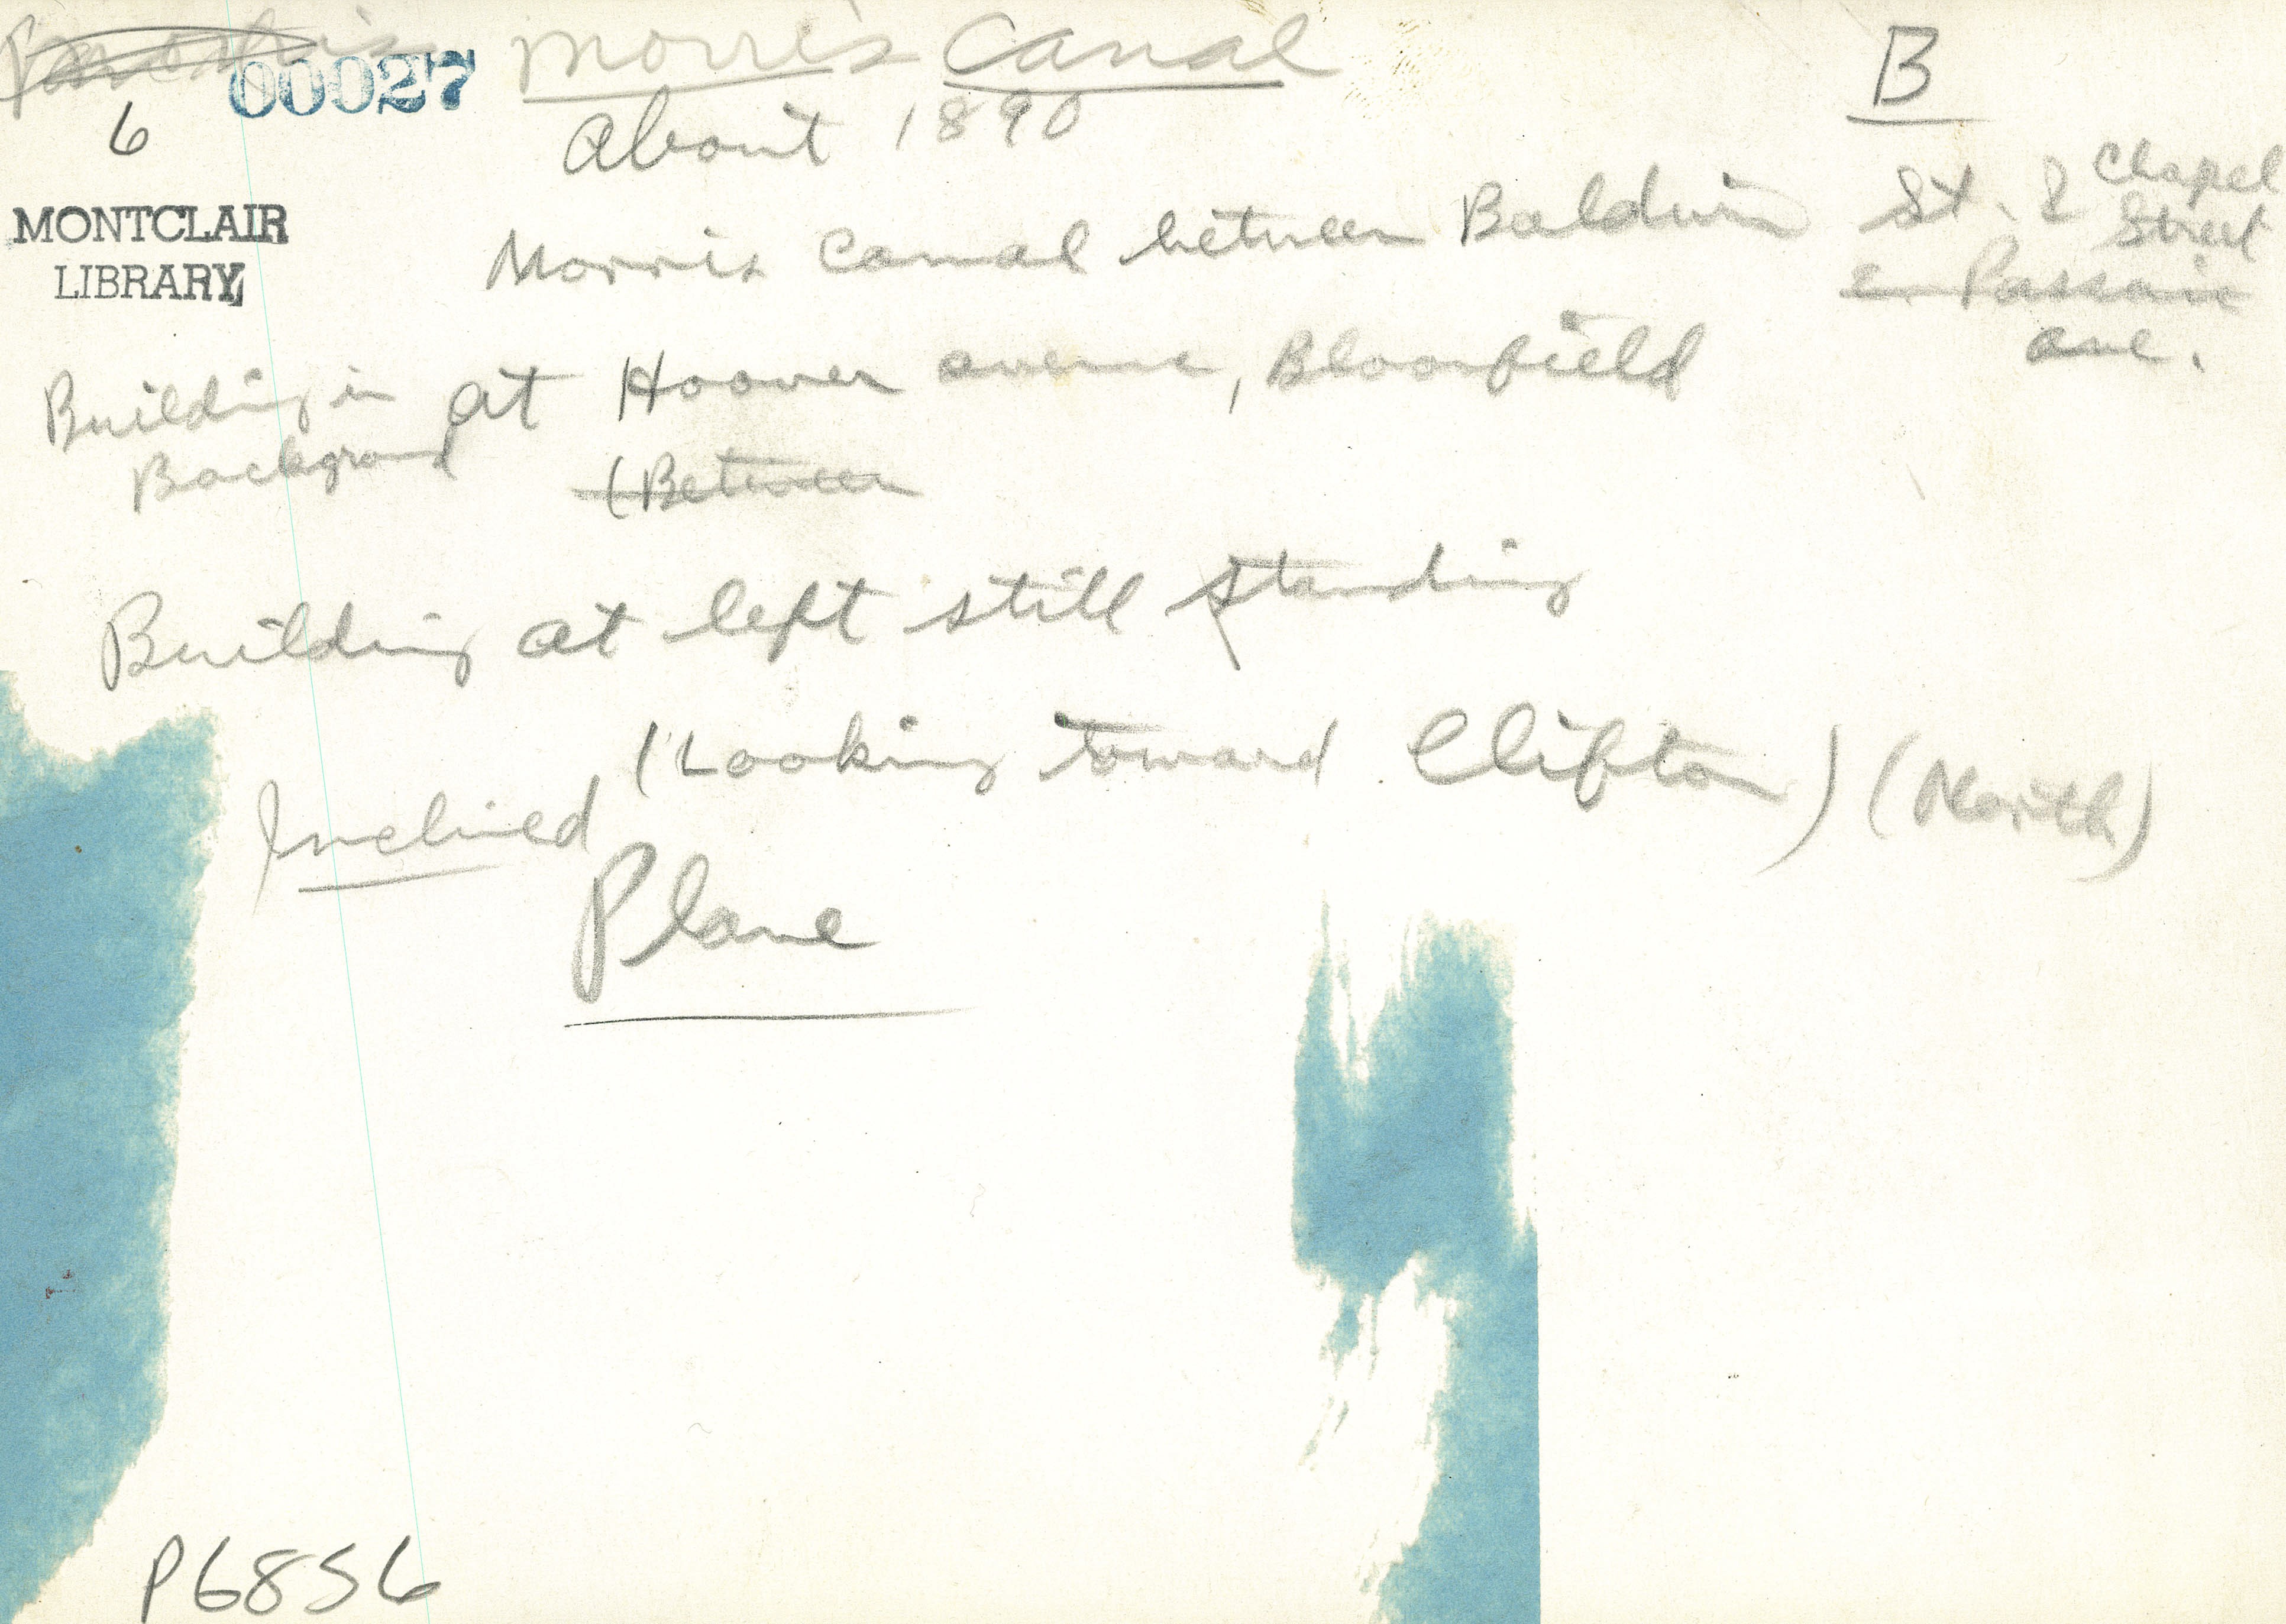 00027 Morris Canal B
6
About 1890
MONTCLAIR
LIBRARY
Morris Canal between Baldwin St. & Chapel
Street
E. Passaic
ave.
Building in
Background at Hoover avenue, Bloomfield
(Between
Building at left still standing
(Looking toward Clifton) (North)
Inclined
Plane
P6856